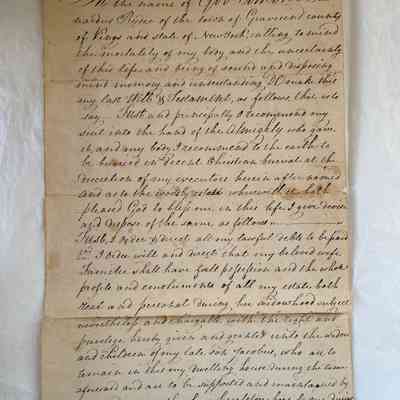 In the name of God Amen
Ryder of the town of Gravesend county
of Kings and state of New York: calling to mind
the mortality of my body, and the uncertainty
of this life; and being of sound and disposing
mind memory and understanding, Do make this
my last Will & Testament, as follows, that is to
say: First and principally I recommend my
soul into the hand of the Almighty who gave
it, and my body I recommend to the earth to
be buried in decent Christian burial at the
discretion of my executors herein after named
and as to the worldly estate wherewith it hath
pleased God to bless me in this life, I give devise
and dispose of the same, as follows
First, I order & direct all my lawful debts to be paid
I order will and direct that my beloved wife
shall have full possession and the whole
profits and emoluments of all my estate both
real and personal during her widowhood subject
nevertheless and chargable with the right and
privilege hereby given and granted unto the widow
and children of my late son Jacobus, who are to
remain in this my dwelling house during the term
aforesaid and are to be supported and maintained by